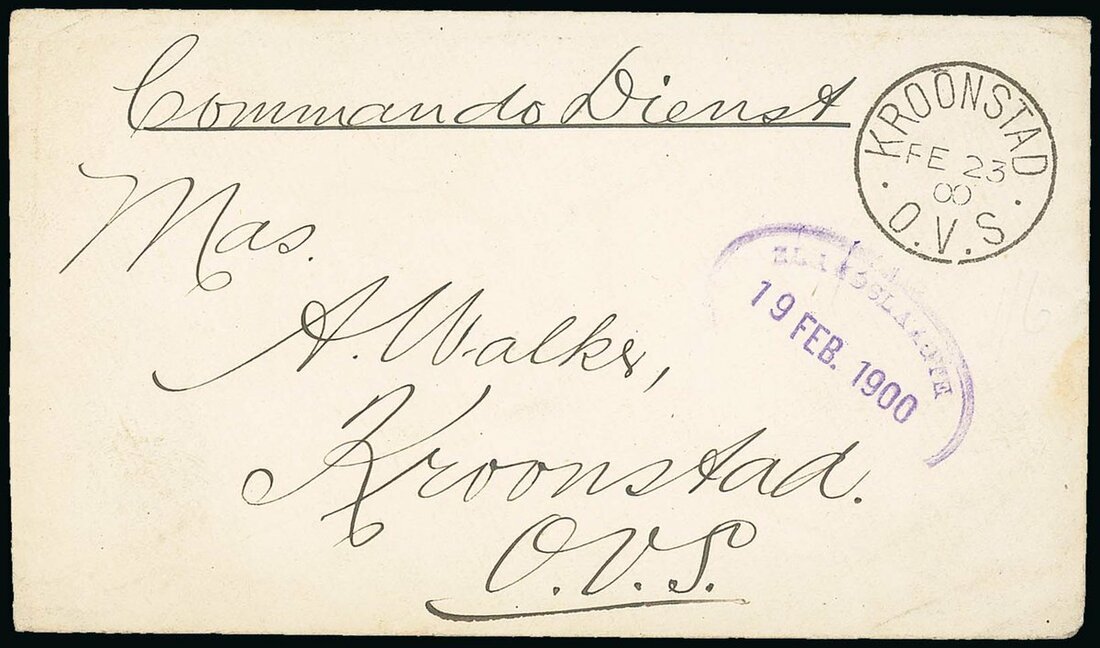 Commando Dienst
KROONSTAD
FE 23
00
O.V.S.
19 FEB. 1900
Mas.
A. Walker,
Kroonstad.
O.V.S.